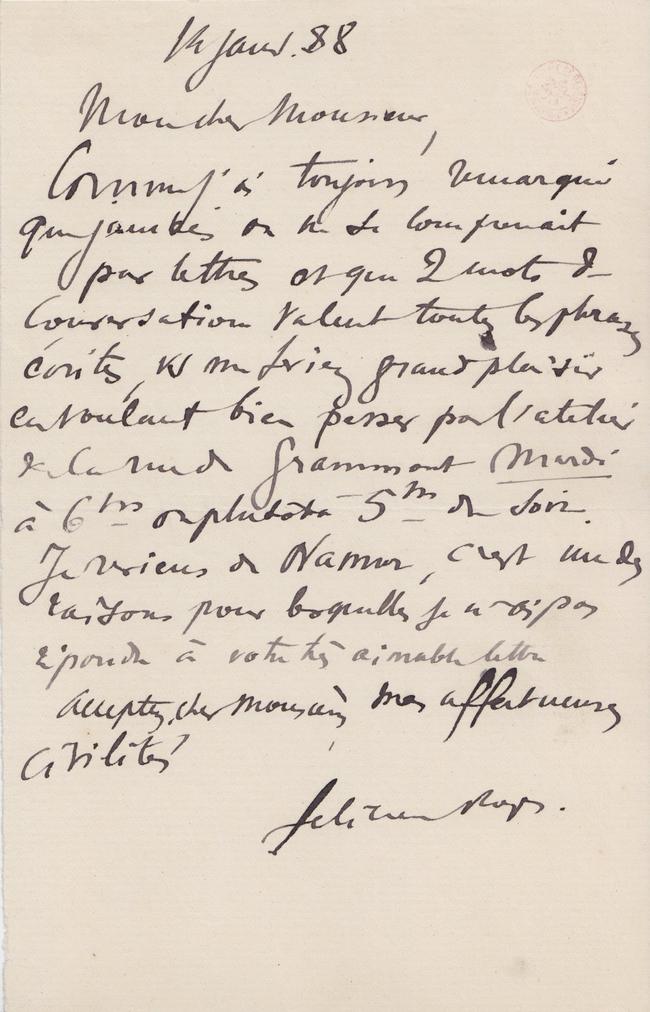 14 janv. 88
Mon cher Monsieur,
Comme j'ai toujours remarqué
que jamais on ne se comprenait
par lettres et que 2 mots de
conversation valent toutes les phrases
écrites, vs me feriez grand plaisir
en voulant bien passer par l'atelier
de la rue de Grammont Mardi
à 6 hrs ou plutôt à 5 hrs du soir.
Je reviens de Namur, c'est une des
raisons pour lesquelles je n'ai pas
répondu à votre très aimable lettre
Acceptez, cher monsieur, mes affectueuses
civilités
Félicien Rops.